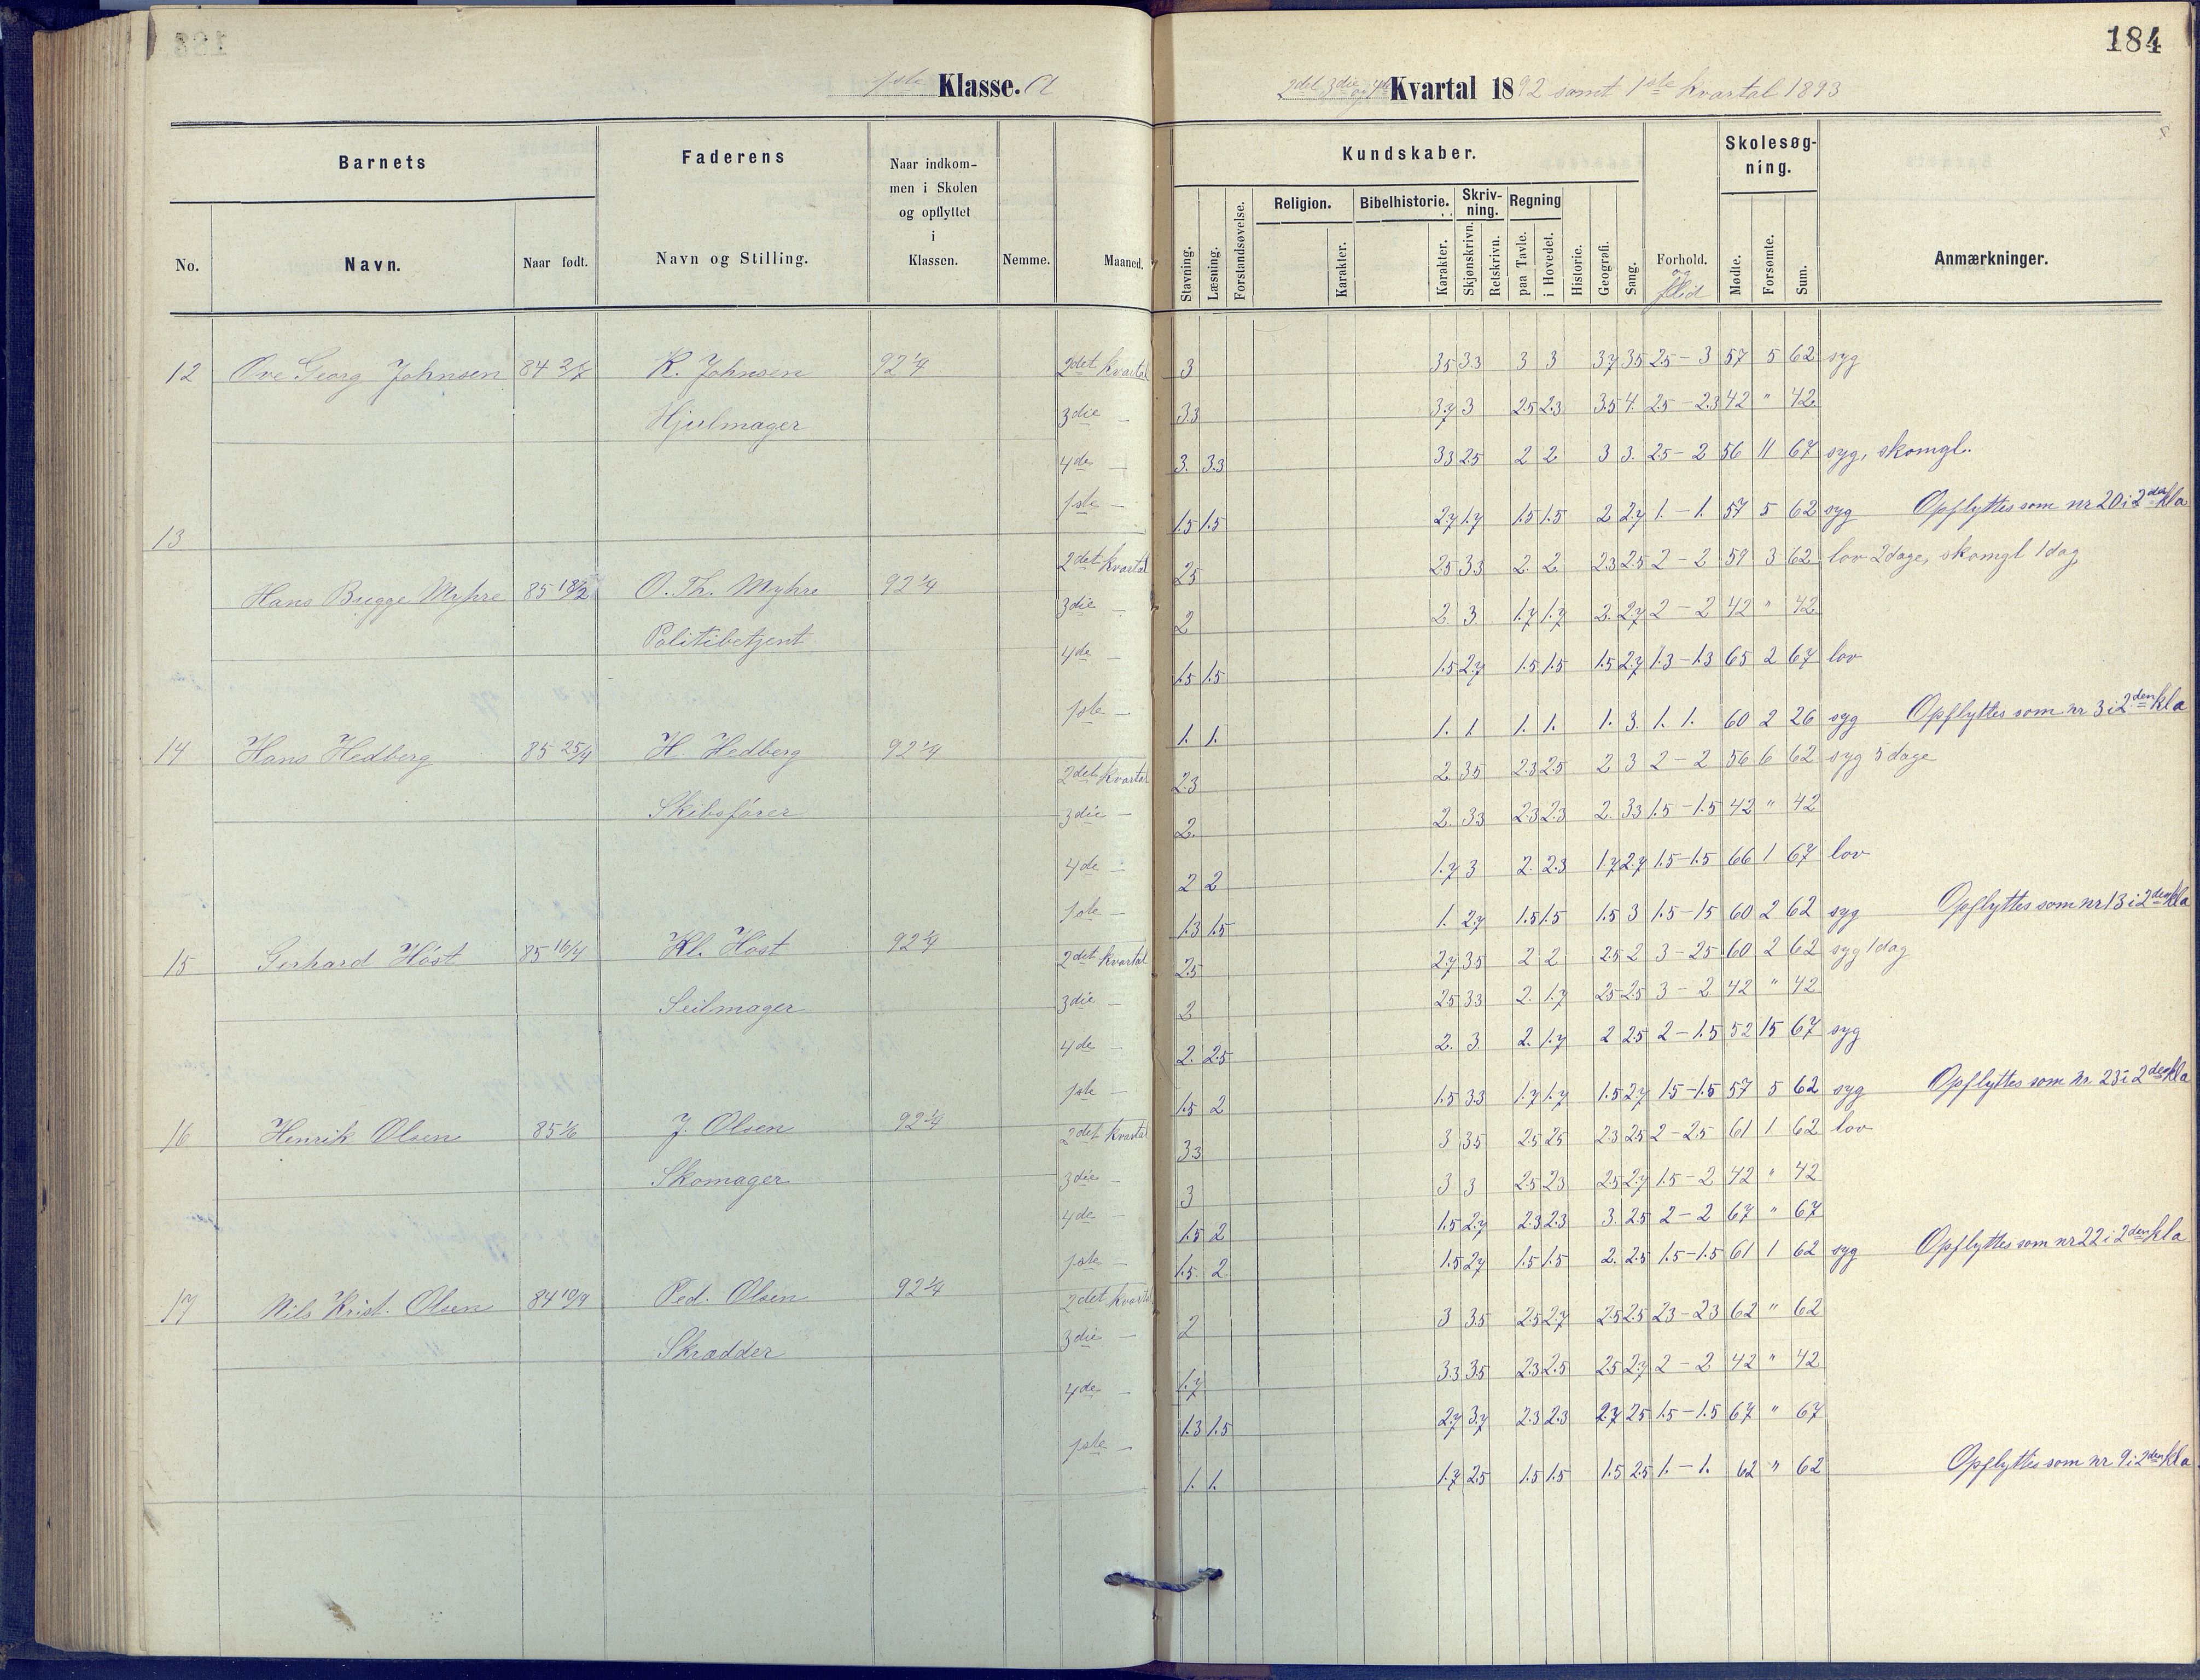 184
1ste Klasse. A
2det 3die og 4de Kvartal 1892 samt 1ste kvartal 1893
Barnets
Faderens
Naar indkom-
men i Skolen
og opflyttet
i
Klassen.
Nemme.
Maaned.
Kundskaber.
Skolesøg-
ning.
No.
Navn.
Naar født.
Navn og Stilling.
Stavning.
Læsning.
Forstandsøvelse.
Religion.
Karakter.
Bibelhistorie.
Karakter.
Skriv-
ning.
Skjønskrivn.
Retskrivn.
Regning
paa Tavle.
i Hovedet.
Historie.
Geografi.
Sang.
Forhold.
og
flid
Mødte.
Forsømte.
Sum.
Anmærkninger.
12 Ove Georg Johnsen 84 2/7 K. Johnsen 92 1/4 2det kvartal 3 3.5 3.3 3 3 3.7 3.5 2.5 - 3 57 5 62 syg
Hjulmager 3die - 3.3 3.7 3 2.5 2.3 3.5 4. 2.5 - 2.3 42 " 42
4de - 3. 3.3 3.3 2.5 2 2 3 3. 2.5 - 2 56 11 67 syg, skomgl.
1ste - 1.5 1.5 2.7 1.7 1.5 1.5 2 2.7 1. - 1. 57 5 62 syg Opflyttes som nr 20 i 2den kla
13 Hans Bugge Myhre 85 18/2 O. Th. Myhre 92 1/4 2det kvartal 2.5 2.5 3.3 2. 2. 2.3 2.5 2 - 2 59 3 62 lov 2 dage, skomgl 1 dag
Politibetjent 3die - 2 2. 3. 1.7 1.7 2. 2.7 2 - 2 42 " 42
4de - 1.5 1.5 1.5 2.7 1.5 1.5 1.5 2.7 1.3 - 1.3 65 2 67 lov
1ste - 1. 1. 1. 1. 1. 1. 1. 3. 1. 1. 60 2 26 syg Opflyttes som nr 3 i 2den kla
14 Hans Hedberg 85 25/4 H. Hedberg 92 1/4 2det kvartal 2.3 2. 3.5 2.3 2.5 2 3 2 - 2 56 6 62 syg 5 dage
Skibsfører 3die - 2. 2. 3.3 2.3 2.3 2. 3.3 1.5 - 1.5 42 " 42
4de - 2 2 1.7 3 2. 2.3 1.7 2.7 1.5 - 1.5 66 1 67 lov
1ste - 1.3 1.5 1. 2.7 1.5 1.5 1.5 3 1.5 - 1.5 60 2 62 syg Opflyttes som nr 13 i 2den kla
15 Gerhard Høst 85 16/4 Kl. Høst 92 1/4 2det kvartal 2.5 2.7 3.5 2 2 2.5 2 3 - 2.5 60 2 62 syg 1 dag
Seilmager 3die - 2 2.5 3.3 2. 1.7 2.5 2.5 3 - 2 42 " 42
4de - 2. 2.5 2. 3. 2. 1.7 2 2.5 2 - 1.5 52 15 67 syg
1ste - 1.5 2 1.5 3.3 1.7 1.7 1.5 2.7 1.5 - 1.5 57 5 62 syg Opflyttes som nr. 23 i 2den kla
16 Henrik Olsen 85 1/6 J. Olsen 92 1/4 2det kvartal 3.3 3 3.5 2.5 2.5 2.3 2.5 2 - 2.5 61 1 62 lov
Skomager 3die - 3 3 3 2.5 2.3 2.5 2.7 1.5 - 2 42 " 42
4de - 1.5 2 1.5 2.7 2.3 2.3 3. 2.5 2 - 2 67 " 67
1ste - 1.5. 2. 1.5 2.7 1.5 1.5 2. 2.5 1.5 - 1.5 61 1 62 syg Opflyttes som nr 22 i 2den kla
17 Nils Krist. Olsen 84 10/9 Ped. Olsen 92 1/4 2det kvartal 2 3 3.5 2.5 2.7 2.5 2.5 2.3 - 2.3 62 " 62
Skrædder 3die - 1.7 3.3 3.5 2.3 2.5 2.5 2.7 2 - 2 42 " 42
4de - 1.3 1.5 2.7 3.7 2.3 2.3 2.7 2.5 1.5 - 1.5 67 " 67
1ste - 1. 1. 1.7 2.5 1.5 1.5 1.5 2.5 1. - 1. 62 " 62 Opflyttes som nr 9 i 2den kla